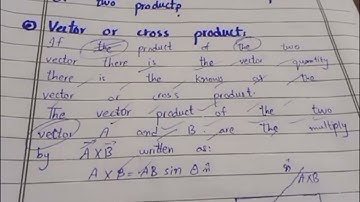 two product?
② Vector or cross product.
If the product of the two
vector there is the vector quantity
there is the known as the
vector or cross product.
The vector product of the two
vector A and B are the multiply
by A⃗×B⃗ written as:
A × B = AB sin θ n̂ n̂
A×B